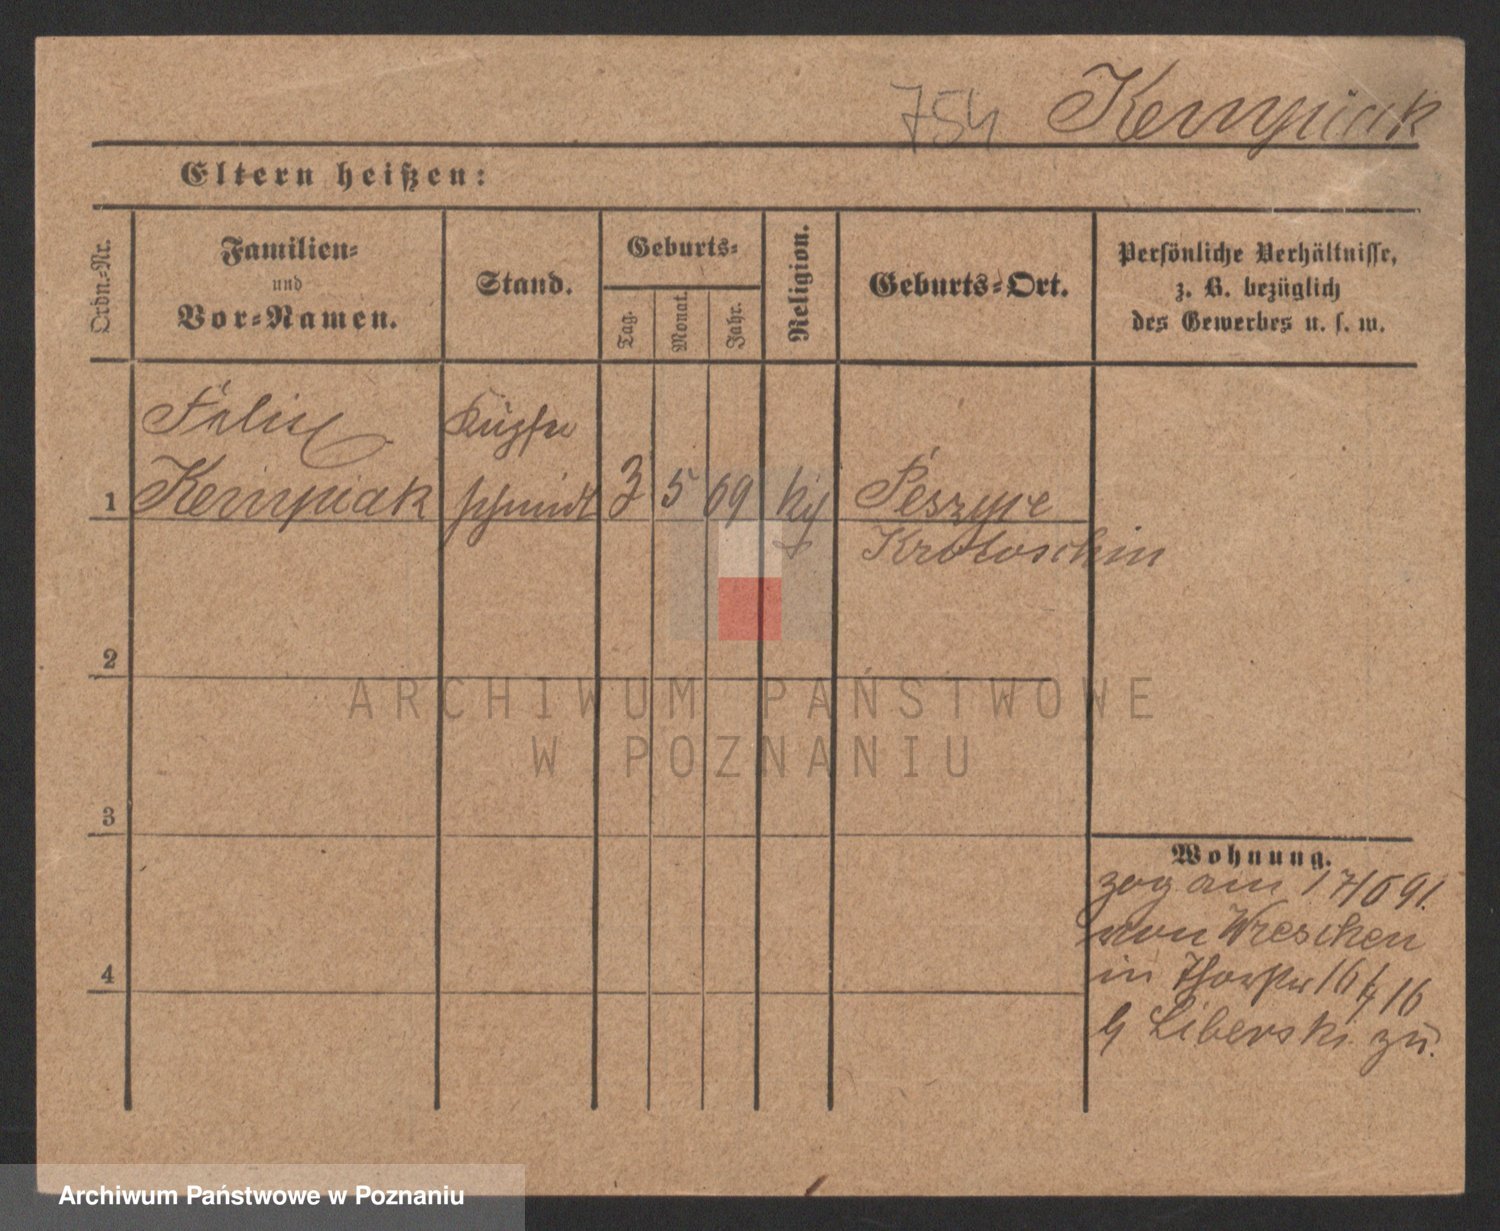 754 Kempiak
Eltern heißen:
Ordn.-Nr.
Familien-
und
Vor-Namen.
Stand.
Geburts-
Tag.
Monat.
Jahr.
Religion.
Geburts-Ort.
Persönliche Verhältnisse,
z. B. bezüglich
des Gewerbes u. s. w.
Felix
Kempiak
Kupfer
schmidt
1
3
5
69
Krotoschin
2
3
4
Wohnung.
zog am 17/6 91.
von Wreschen
in 16/4 16
Liberski zu.
ARCHIWUM PAŃSTWOWE
W POZNANIU
Archiwum Państwowe w Poznaniu